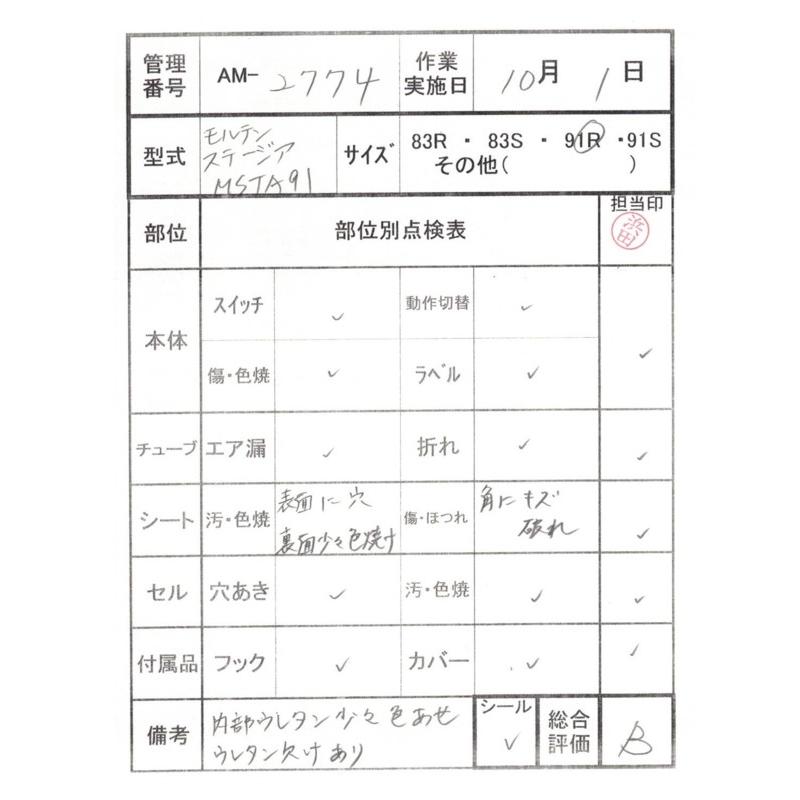 管理番号 AM-2774 作業実施日 10月1日
型式 モルテン ステージア MSTA91 サイズ 83R ・ 83S ・ 91R ・91S
その他( )
部位 部位別点検表 担当印 浜田
本体 スイッチ ✓ 動作切替 ✓ ✓
傷・色焼 ✓ ラベル ✓
チューブ エア漏 ✓ 折れ ✓ ✓
シート 汚・色焼 表面に穴 傷・ほつれ 角にキズ ✓
裏面少々色焼け 破れ
セル 穴あき ✓ 汚・色焼 ✓ ✓
付属品 フック ✓ カバー ✓ ✓
備考 内部ウレタン少々色あせ シール ✓ 総合評価 B
ウレタン欠けあり